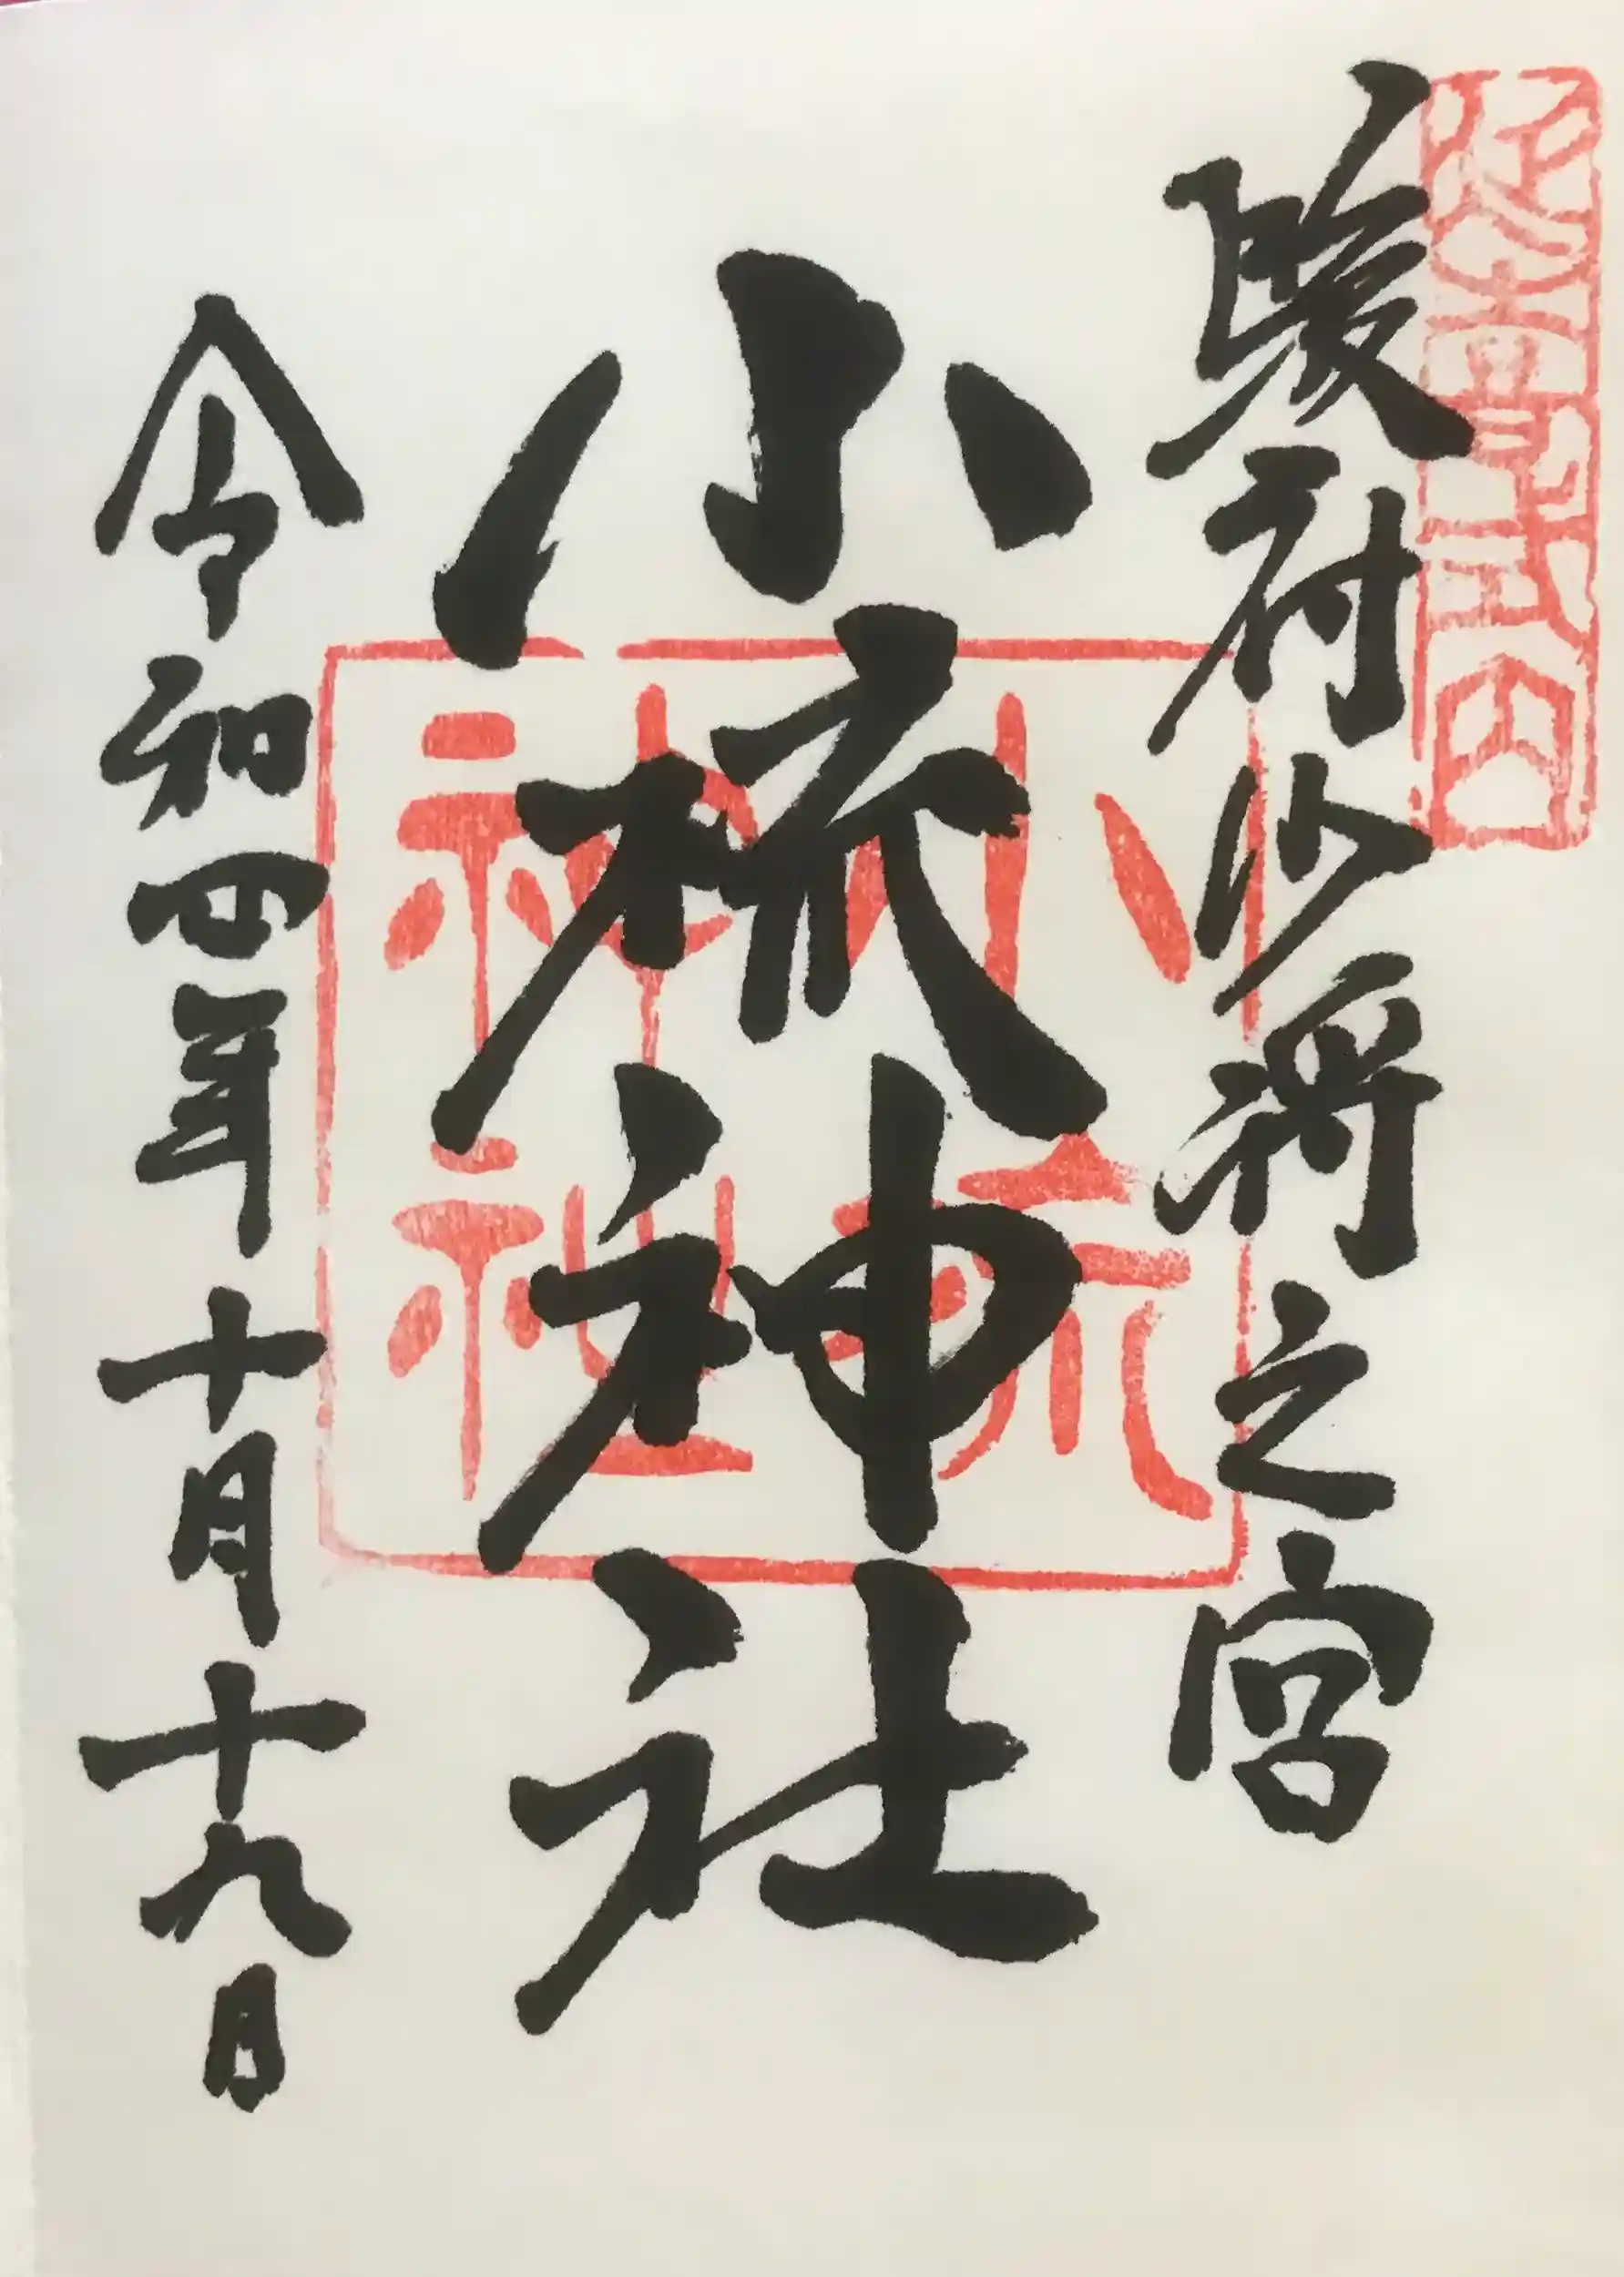 延喜式内
駿府少将之宮
小梳神社
小梳神社
令和四年十月十九日